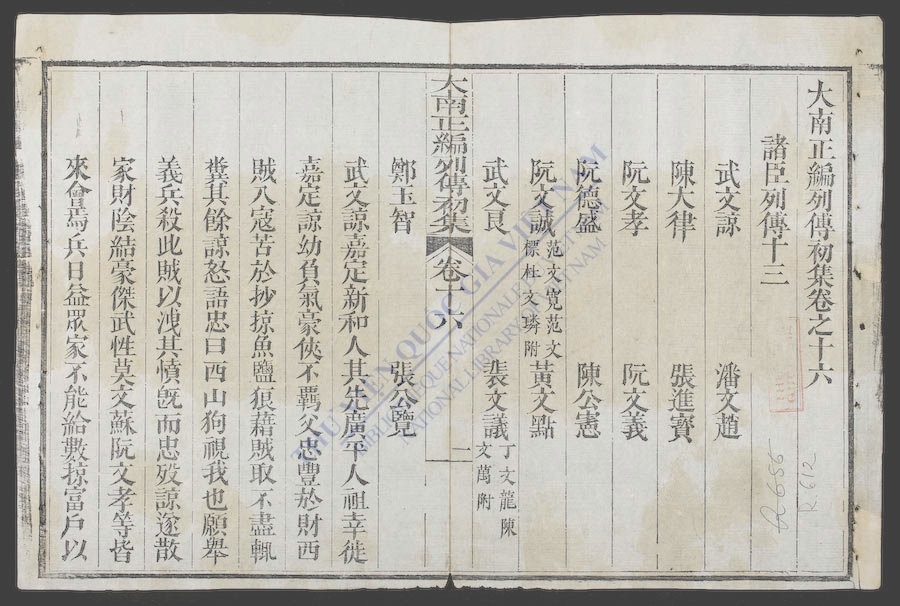 大南正編列傳初集卷之十六
諸臣列傳十三
武文諒 潘文趙
陳大律 張進寶
阮文孝 阮文義
阮德盛 陳公憲
阮文誠 范文寬范文標杜文璘附 黃文點
武文良 裴文議 丁文龍陳文萬附
大南正編列傳初集 卷十六 一
鄭玉智 張公覽
武文諒嘉定新和人其先廣平人祖幸徙
嘉定諒幼負氣豪俠不羈父忠豐於財西
賊入寇苦於抄掠魚鹽狼藉賊取不盡輒
糞其餘諒怒語忠曰西山狗視我也願舉
義兵殺此賊以洩其憤既而忠歿諒遂散
家財陰結豪傑武性莫文蘇阮文孝等皆
來會焉兵日益眾家不能給數掠富戶以
THƯ VIỆN QUỐC GIA VIỆT NAM
BIBLIOTHEQUE NATIONALE DU VIETNAM
NATIONAL LIBRARY OF VIETNAM
R.686
R.612